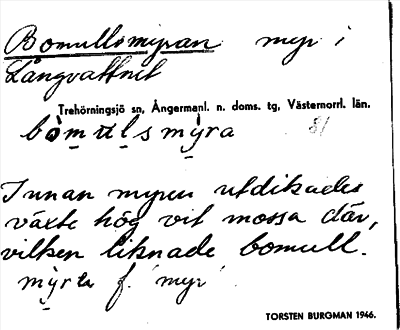 Bomullsmyran myr i
Långvattnet
Trehörningsjö sn, Ångermanl. n. doms. tg, Västernorrl. län.
bòmulsmỳra 81
Innan myren utdikades
växte hög vit mossa där,
vilken liknade bomull.
mỳra f. 'myr'
TORSTEN BURGMAN 1946.